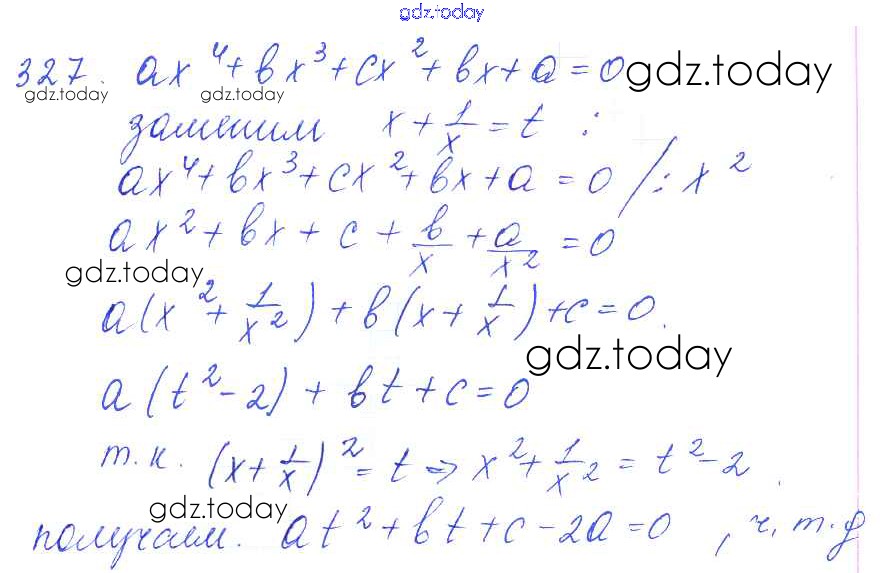 gdz.today
327. ax⁴ + bx³ + cx² + bx + a = 0 gdz.today
gdz.today gdz.today
заменим x + 1/x = t :
ax⁴ + bx³ + cx² + bx + a = 0 / : x²
ax² + bx + c + b/x + a/x² = 0
gdz.today
a(x² + 1/x²) + b(x + 1/x) + c = 0.
gdz.today
a(t² - 2) + bt + c = 0
т.к. (x + 1/x)² = t => x² + 1/x² = t² - 2
gdz.today
получаем. at² + bt + c - 2a = 0 , ч.т.д